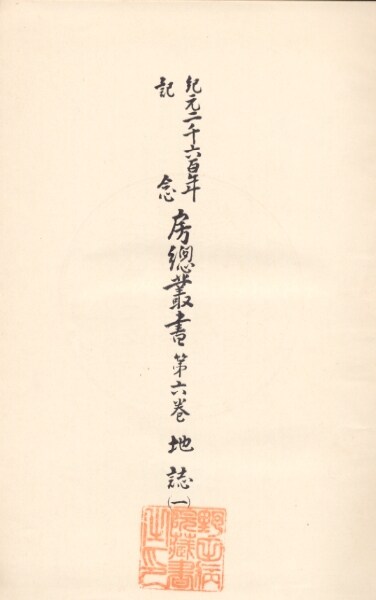 紀元二千六百年
記念
房總叢書 第六巻 地誌(一)